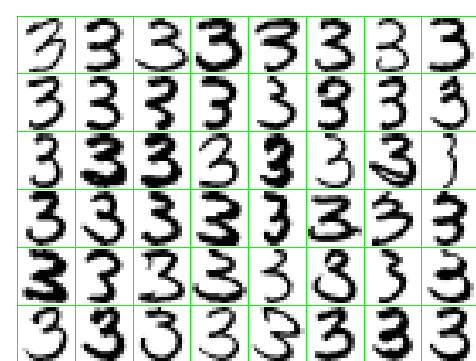 3 3 3 3 3 3 3 3
3 3 3 3 3 3 3 3
3 3 3 3 3 3 3 3
3 3 3 3 3 3 3 3
3 3 3 3 3 3 3 3
3 3 3 3 3 3 3 3